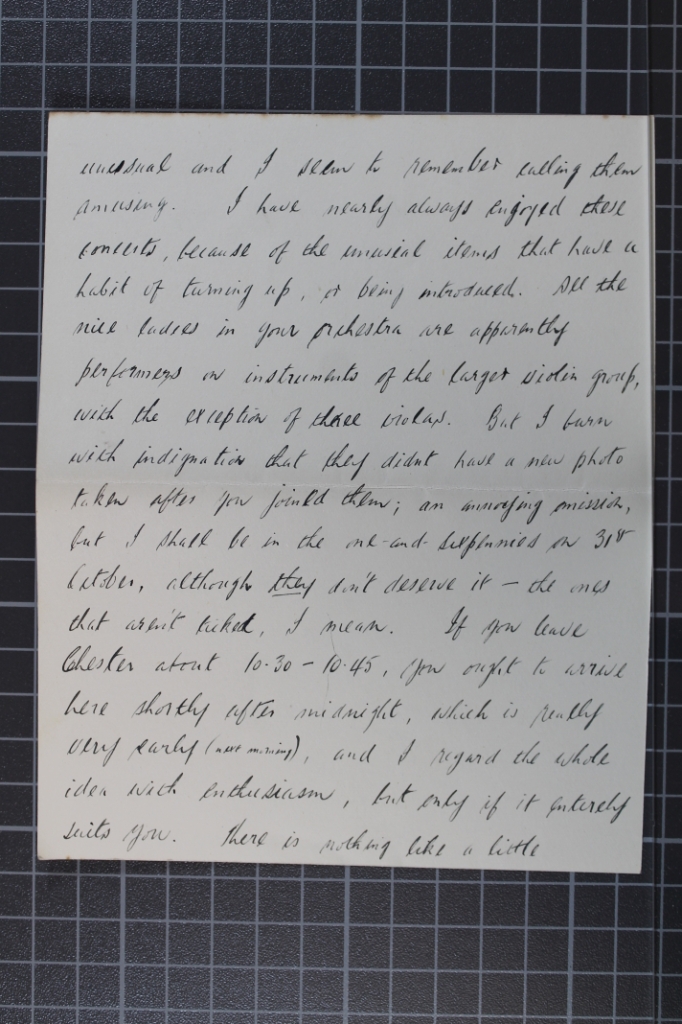 unusual and I seem to remember calling them
amusing. I have nearly always enjoyed these
concerts, because of the unusual items that have a
habit of turning up, or being introduced. All the
nice ladies in your orchestra are apparently
performers on instruments of the larger violin group,
with the exception of three violas. But I burn
with indignation that they didnt have a new photo
taken after you joined them; an annoying omission,
but I shall be in the one-and-sixpennies on 31st
October, although they don't deserve it – the ones
that aren't ticked, I mean. If you leave
Chester about 10·30 – 10·45, you ought to arrive
here shortly after midnight, which is really
very early (next morning), and I regard the whole
idea with enthusiasm, but only if it entirely
suits you. There is nothing like a little